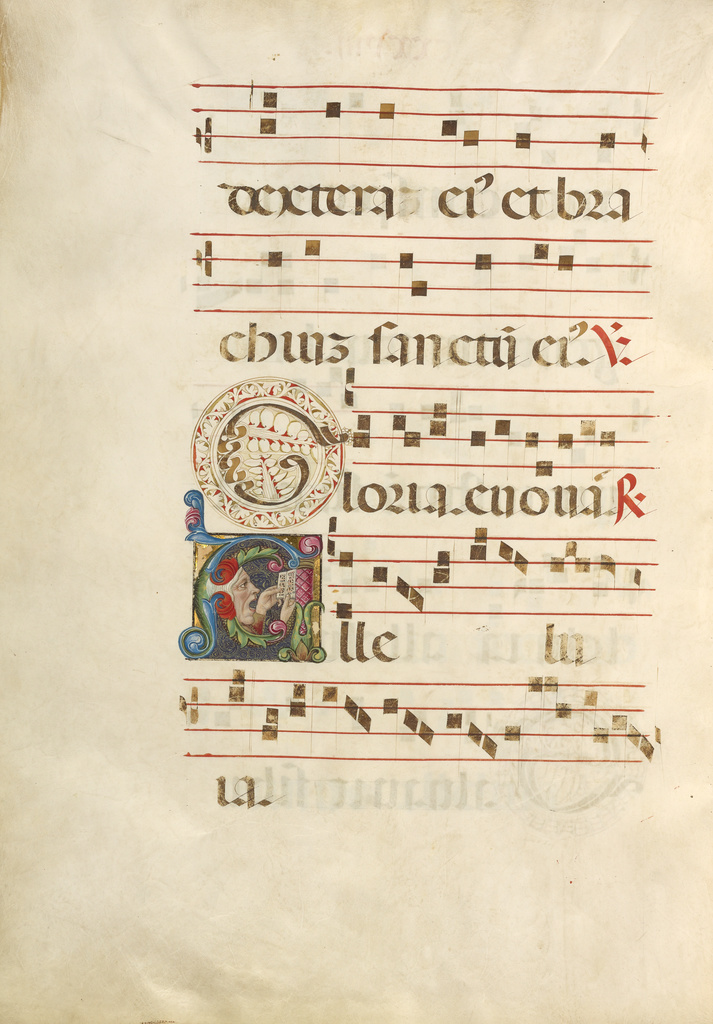 dextera eiꝰ et bra
chiuȝ sanctū eiꝰ. ℣.
Gloria. euouā ℟.
Alle lu
ia.